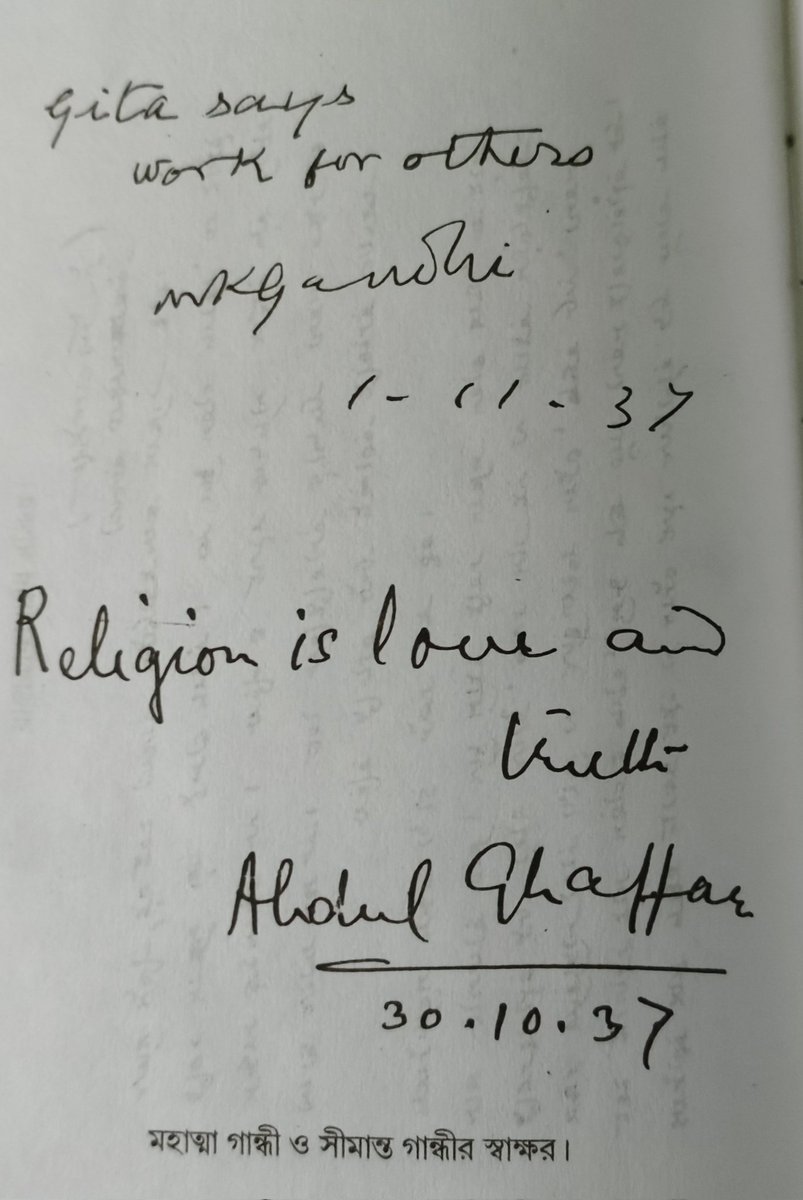 Gita says
work for others
MKGandhi
1-11-37
Religion is love and
truth
Abdul Ghaffar
30.10.37
মহাত্মা গান্ধী ও সীমান্ত গান্ধীর স্বাক্ষর।